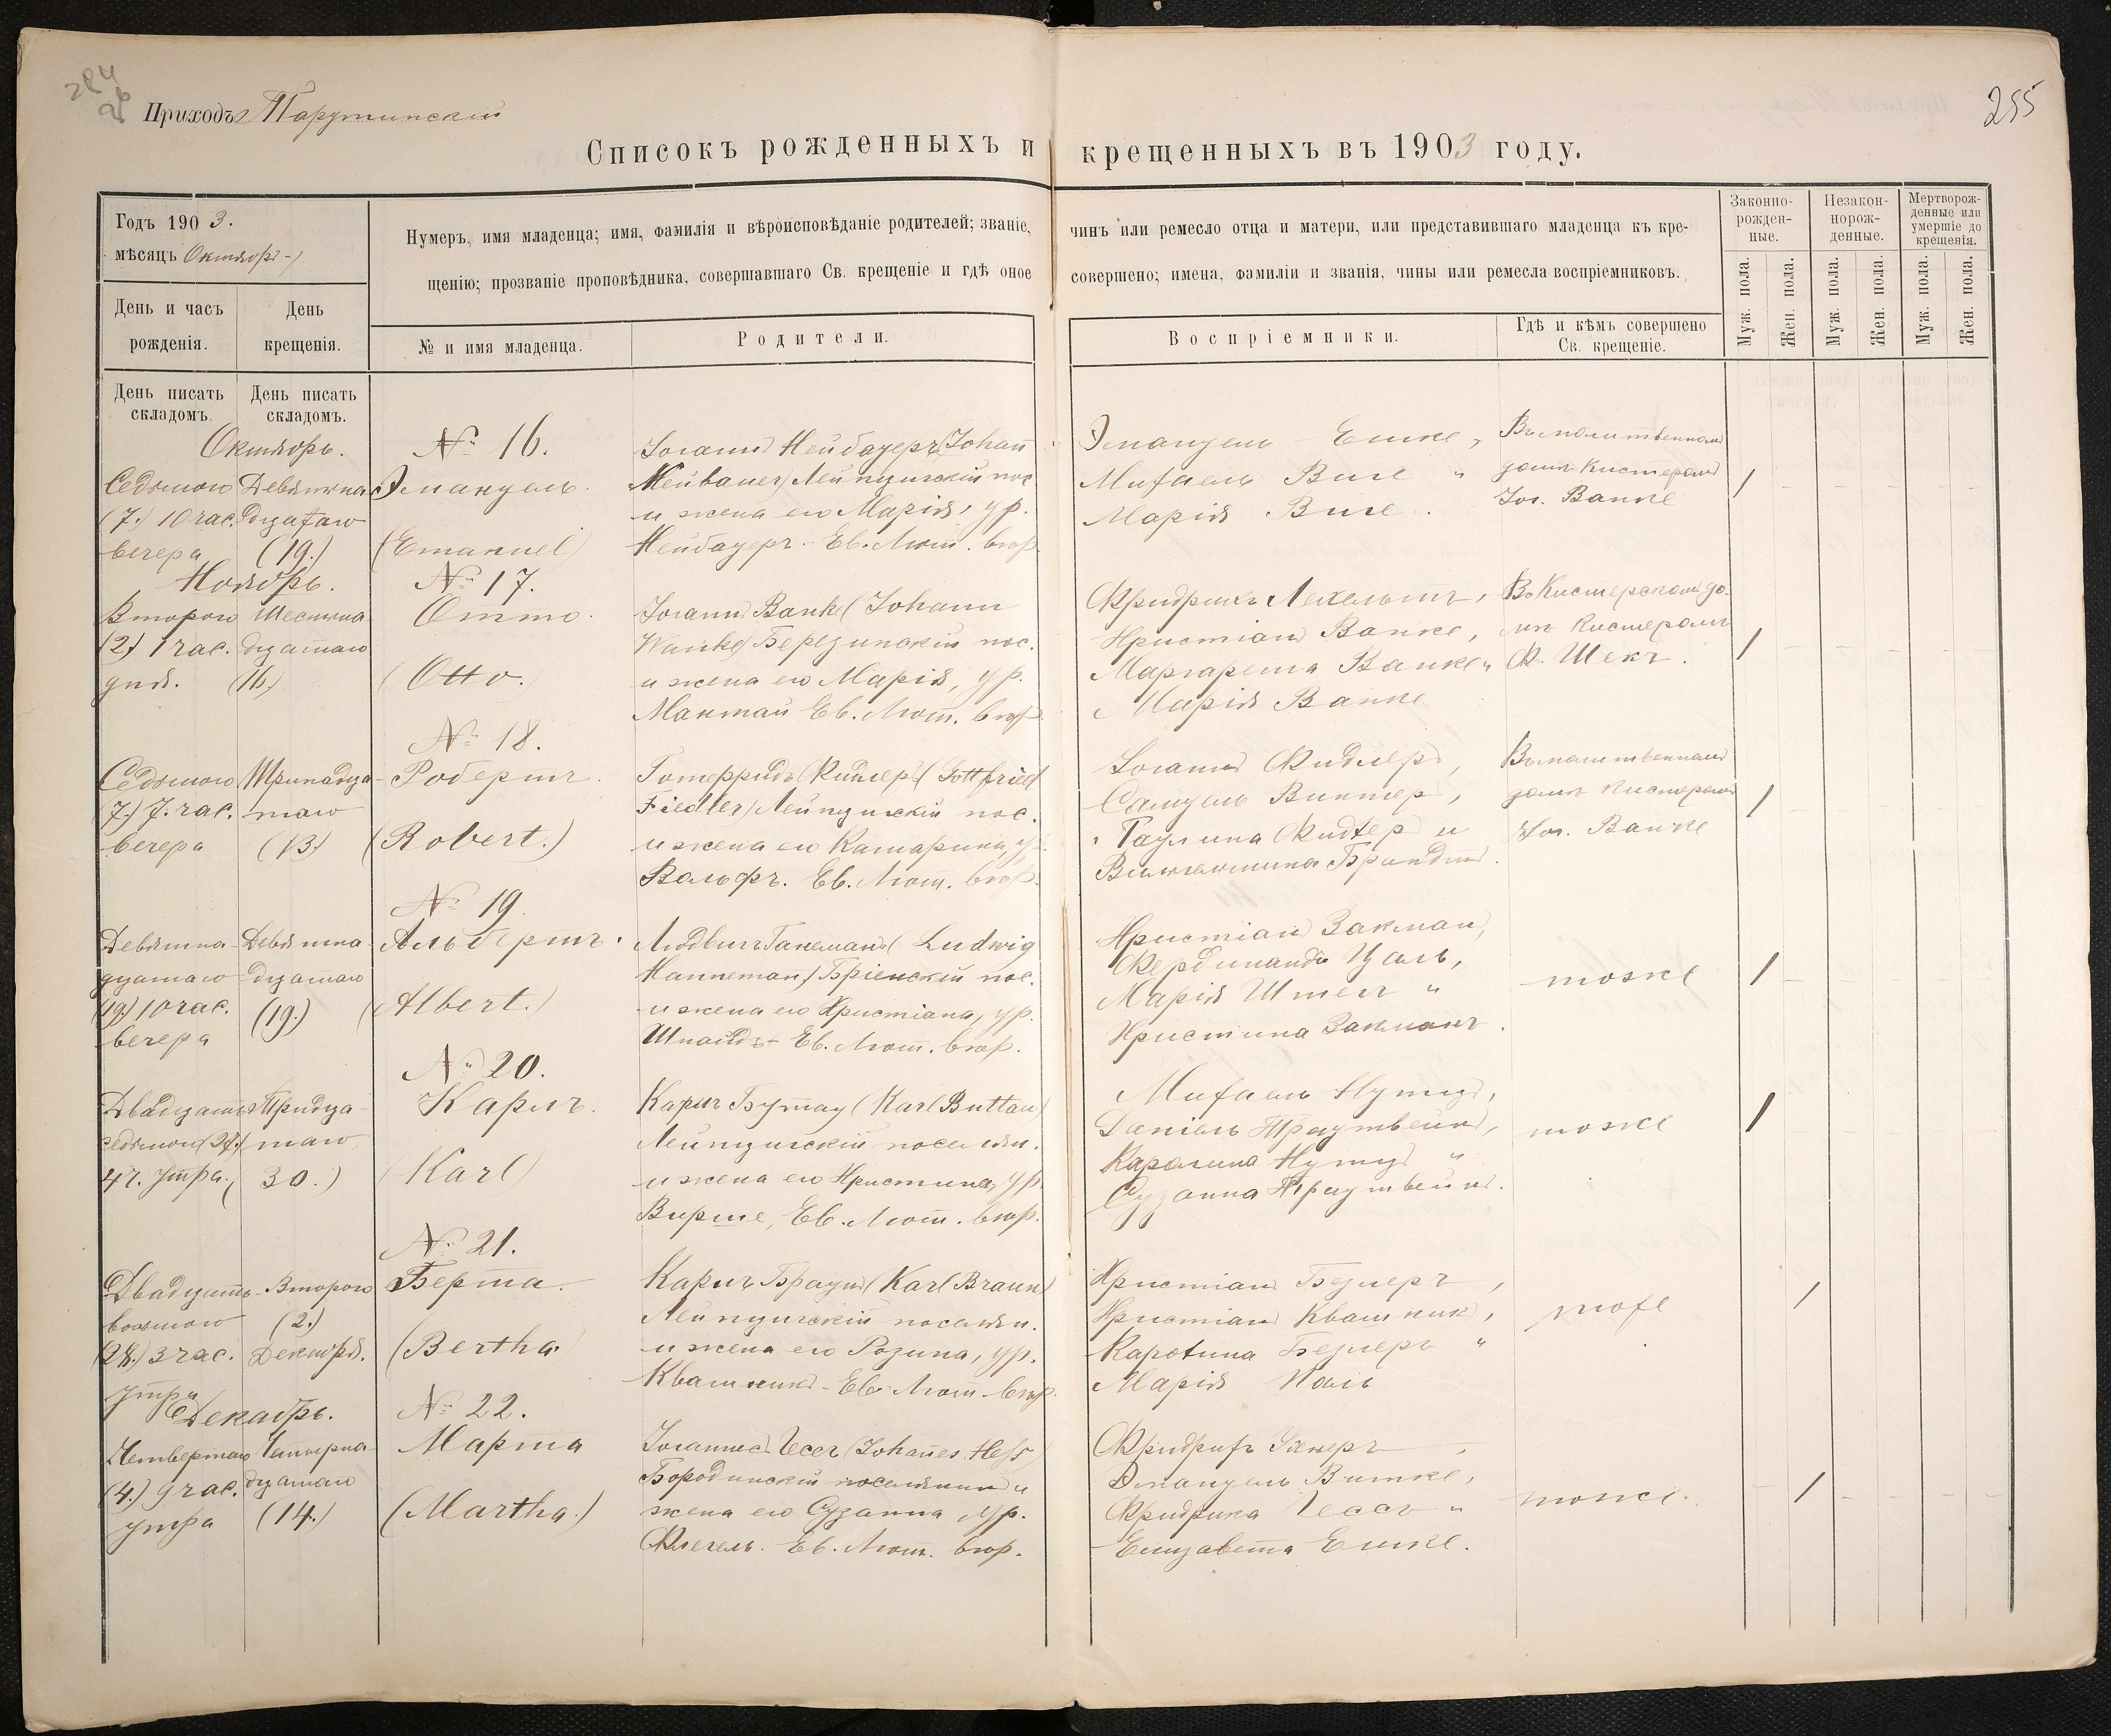 255
Приходъ Тарутинскій
Списокъ рожденныхъ и крещенныхъ въ 1903 году.
Годъ 1903.
мѣсяцъ Октябрь
День и часъ рожденія.
День крещенія.
Нумеръ, имя младенца; имя, фамилія и вѣроисповѣданіе родителей; званіе, чинъ или ремесло отца и матери, или представившаго младенца къ кре-
щенію; прозваніе проповѣдника, совершавшаго Св. крещеніе и гдѣ оное совершено; имена, фамиліи и званія, чины или ремесла воспріемниковъ.
№ и имя младенца.
Родители.
Воспріемники.
Гдѣ и кѣмъ совершено
Св. крещеніе.
Законно-
рожден-
ные.
Незакон-
норож-
денные.
Мертворож-
денные или
умершіе до
крещенія.
Муж. пола.
Жен. пола.
Муж. пола.
Жен. пола.
Муж. пола.
Жен. пола.
День писать
складомъ.
День писать
складомъ.
Октябрь.
Седьмого
(7.) 10 час.
вечера
Девятна
дцатаго
(19.)
№ 16.
Эмануель.
(Emanuel)
Іоганнъ Нейбауеръ (Johann
Neubauer) Лейпцигскій пос.
и жена его Марія, ур.
Нейбауеръ. Ев. Лют. вѣр.
Эмануель Ешке,
Михаель Визе "
Марія Визе.
Въ молитвенномъ
домѣ Кистеромъ
Іог. Ванке
Ноябрь.
Второго
(2.) 1 час.
дня.
Шестна
дцатаго
(16.)
№ 17.
Отто.
(Otto.)
Іоганнъ Ванке (Johann
Wanke) Березинскій пос.
и жена его Марія, ур.
Мантай Ев. Лют. вѣр.
Фридрихъ
Христіанъ Ванке,
Маргарета Ванке "
Марія Ванке
Въ Кистерскомъ до-
мѣ Кистеромъ
Ф. Шекъ.
Седьмого
(7.) 7. час.
вечера
Тринадца-
таго
(13.)
№ 18.
Робертъ.
(Robert.)
Готфридъ Фидлеръ (Gottfried
Fiedler) Лейпцигскій пос.
и жена его Катарина, ур.
Вольфъ. Ев. Лют. вѣр.
Іоганнъ Фидлеръ,
Самуель Винтеръ,
Паулина Фидлеръ и
Вильгельмина Брандтъ.
Въ молитвенномъ
домѣ Кистеромъ
Іог. Ванке
Девятна-
дцатаго
(19.) 10 час.
вечера
Девятна
дцатаго
(19.)
№ 19.
Альбертъ.
(Albert.)
Людвигъ Ганеманъ (Ludwig
Hanneman) Бріенскій пос.
и жена его Христіана, ур.
Шнайдъ- Ев. Лют. вѣр.
Христіанъ Закманъ,
Фердинандъ Цаль,
Марія "
Христина Закманъ.
тоже
Двадцать
седьмого (27.)
4 ч. утра.
Тридца-
таго
(30.)
№ 20.
Карлъ.
(Karl)
Карлъ Бутау (Karl Buttau)
Лейпцигскій поселян.
и жена его Христина, ур.
Вирше, Ев. Лют. вѣр.
Михаель Нутцъ,
Даніель Траутвейнъ,
Каролина Нутцъ "
Сузанна Траутвейнъ.
тоже
Двадцать-
восьмого
(28.) 3 час.
утра
Второго
(2.)
Декабря.
№ 21.
Берта.
(Bertha.)
Карлъ Браунъ (Karl Braun)
Лейпцигскій поселян.
и жена его Розина, ур.
Квашникъ - Ев. Лют. вѣр.
Христіанъ Безлеръ,
Христіанъ Квашник,
Каролина Безлеръ "
Марія
тоже
Декабрь.
Четвертаго
(4.) 9 час.
утра
Четырна-
дцатаго
(14.)
№ 22.
Марта
(Martha.)
Іоганнесъ Гессъ (Johannes Heß)
Бородинскій поселянинъ и
жена его Сузанна ур.
Флегель. Ев. Лют. вѣр.
Фридрихъ
Эмануель Витке,
Фридрика Гессъ "
Елизавета Ешке.
тоже.